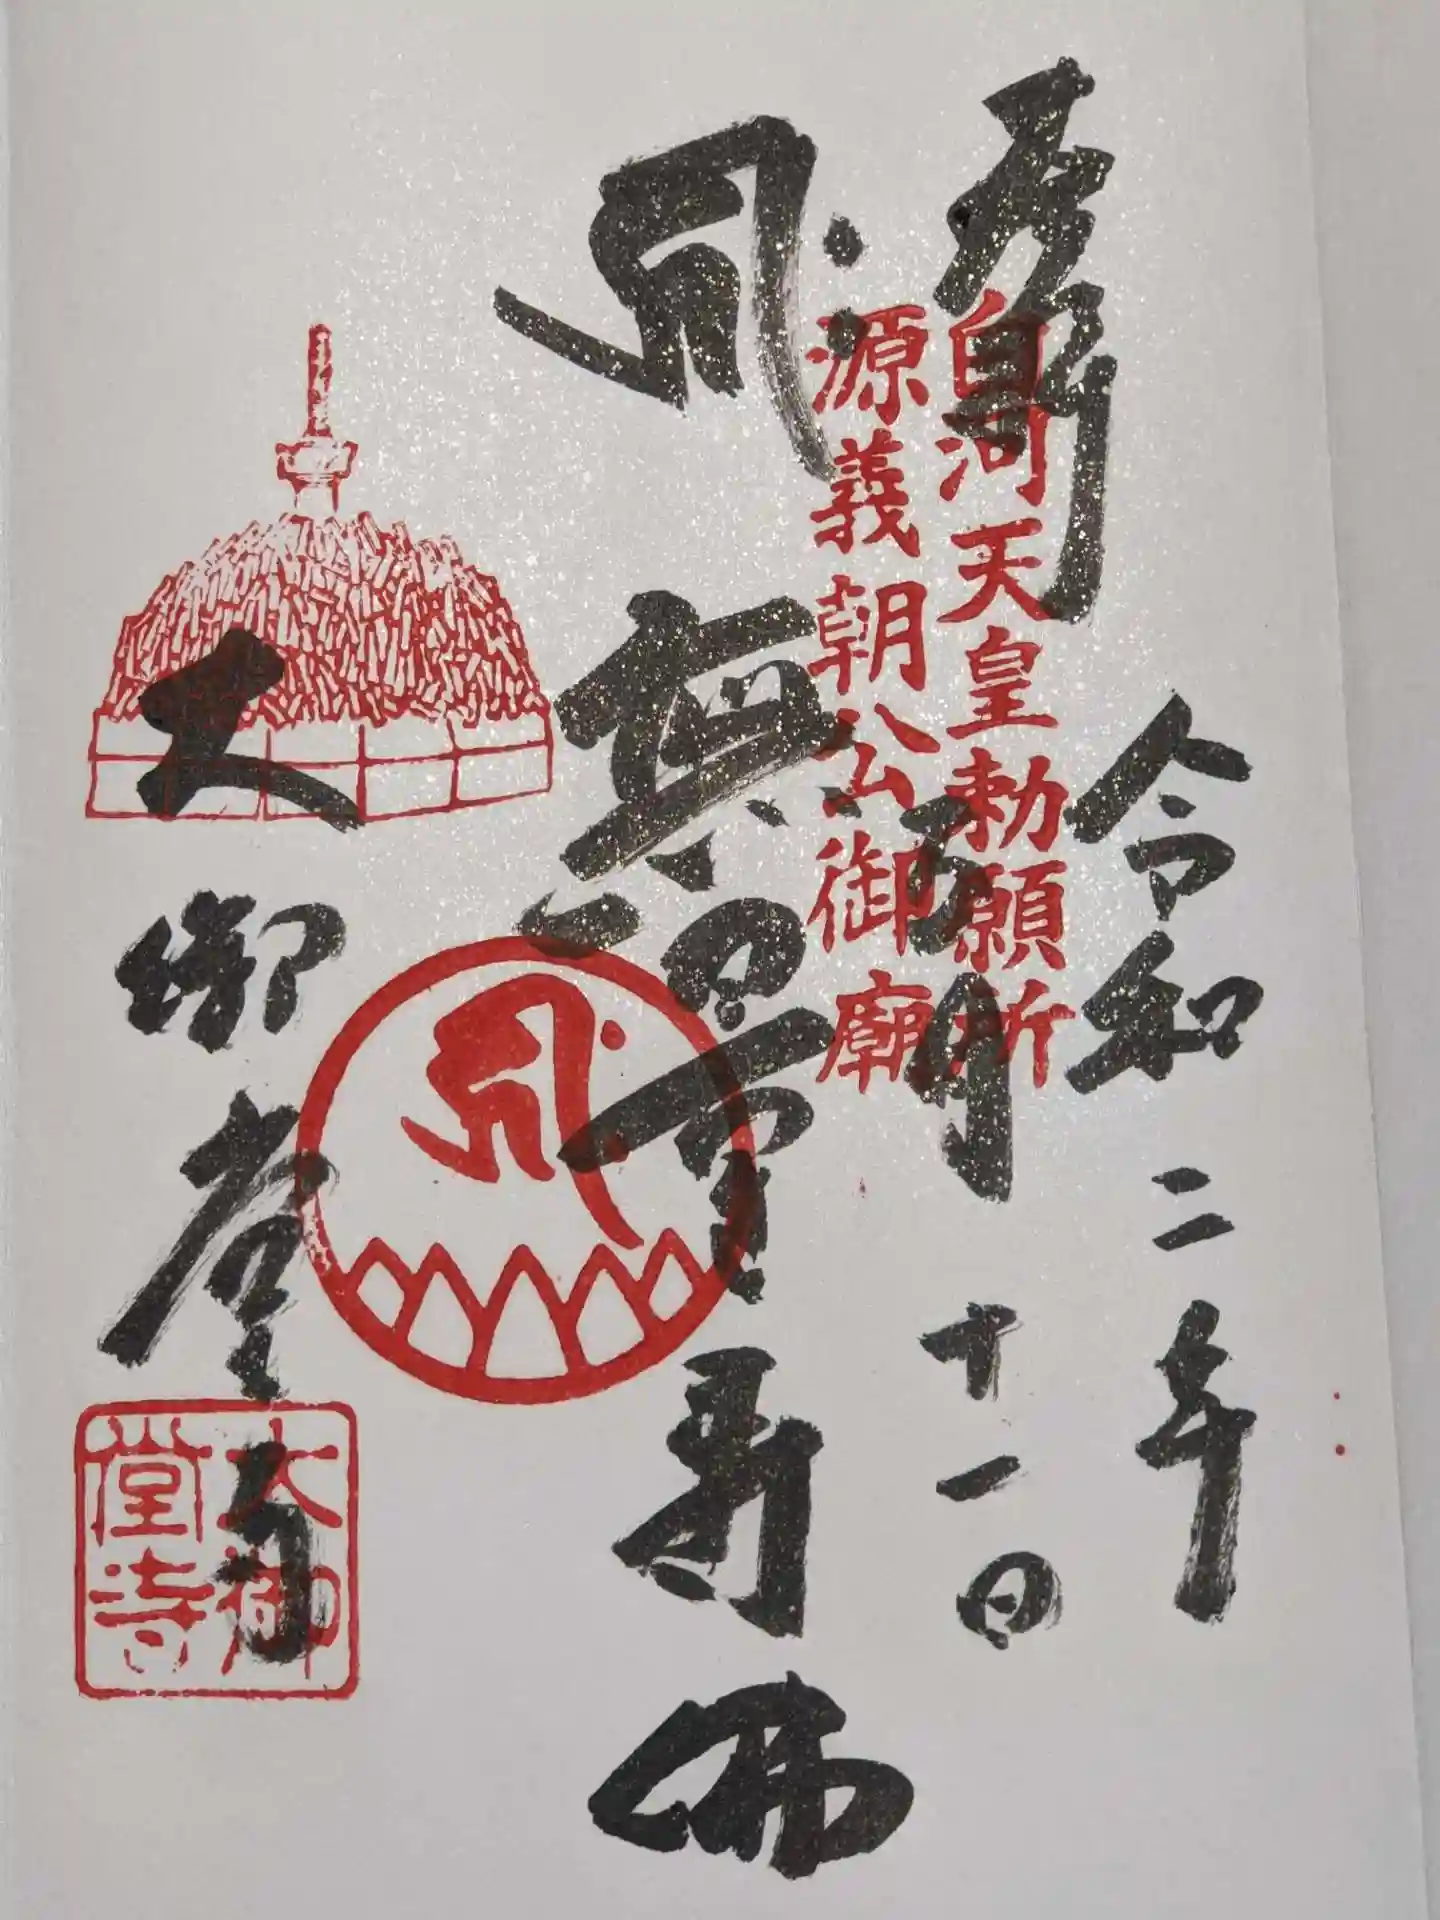 奉拝
令和二年
月十一日
白河天皇勅願所
源義朝公御廟
ह्रीः
無量寿佛
大御堂寺
ह्रीः
大御
堂寺